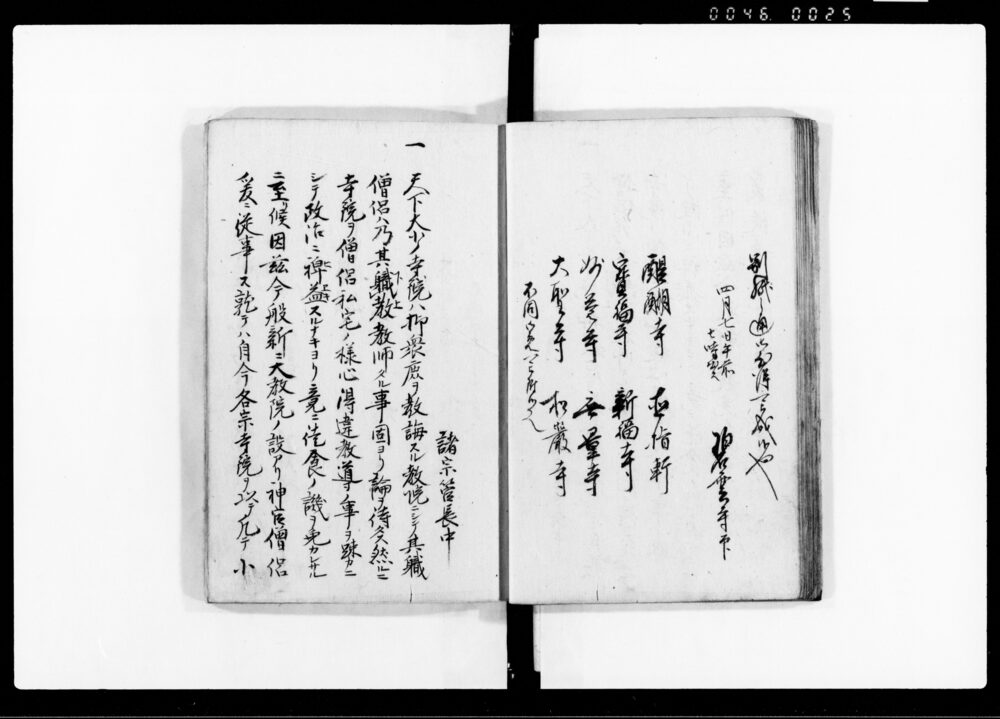 0046 0025
別紙之通
四月七日午前
碧雲寺 印
醍醐寺
寶福寺 新福寺
妙〻寺 無量寺
大聖寺 松巖寺
不同
諸宗管長中
一 天下大小ノ寺院ハ抑衆庶ヲ教誨スル教院ニシテ其職
僧侶ハ乃其職教教師タル事固ヨリ論ヲ待タス然ルニ
寺院ヲ僧侶私宅ノ様心得違教導ノ事ヲ疎カニ
シテ政治ニ裨益スルナキヨリ竟ニ徒食ノ譏ヲ免カレサル
ニ至リ候因玆今般新ニ大教院ノ設アリ神官僧侶
爰ニ從事ス就テハ自今各宗寺院ヲ以テ凡テ小